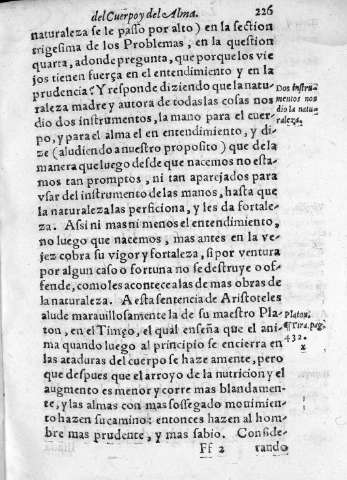 del Cuerpo y del Alma. 226
naturaleza se le passo por alto) en la section
trigesima de los Problemas, en la question
quarta, adonde pregunta, que porque los vie
jos tienen fuerça en el entendimiento y en la
prudencia? Y responde diziendo que la natu-
raleza madre y autora de todas las cosas nos
dio dos instrumentos, la mano para el cuer-
po, y para el alma el en entendimiento, y di-
ze (aludiendo a nuestro proposito) que de la
manera que luego desde que nacemos no esta-
mos tan promptos, ni tan aparejados para
vsar del instrumento de las manos, hasta que
la naturaleza las perficiona, y les da fortale-
za. Assi ni mas ni menos el entendimiento,
no luego que nacemos, mas antes en la ve-
jez cobra su vigor y fortaleza, si por ventura
por algun caso o fortuna no se destruye o of-
fende, como les acontece a las de mas obras de
la naturaleza. A esta sentencia de Aristoteles
alude marauillosamente la de su maestro Pla-
ton, en el Timeo, el qual enseña que el ani-
ma quando luego al principio se encierra en
las ataduras del cuerpo se haze amente, pero
que despues que el arroyo de la nutricion y el
augmento es menor y corre mas blandamen-
te, y las almas con mas sossegado mouimien-
to hazen su camino: entonces hazen al hom-
bre mas prudente, y mas sabio. Conside-
Ff 2 rando
Dos instru-
mentos nos
dio la natu-
raleza.
Platon.
Tira. pag.
432.
x